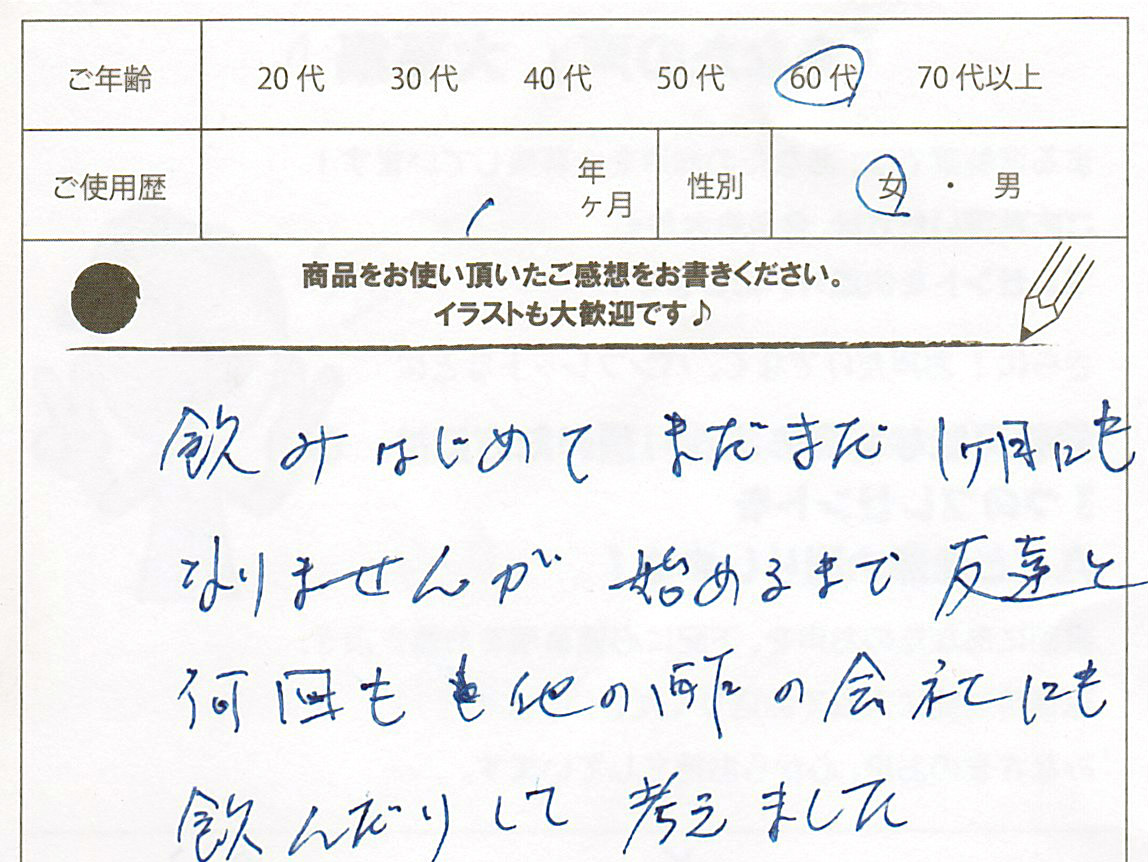 ご年齢 20代 30代 40代 50代 60代 70代以上
ご使用歴 1 年 ヶ月 性別 女 ・ 男
商品をお使い頂いたご感想をお書きください。
イラストも大歓迎です♪
飲みはじめて まだまだ 1ヶ月にも
なりませんが 始めるまで 友達と
何回も 他の所の会社にも
飲んだりして 考えました